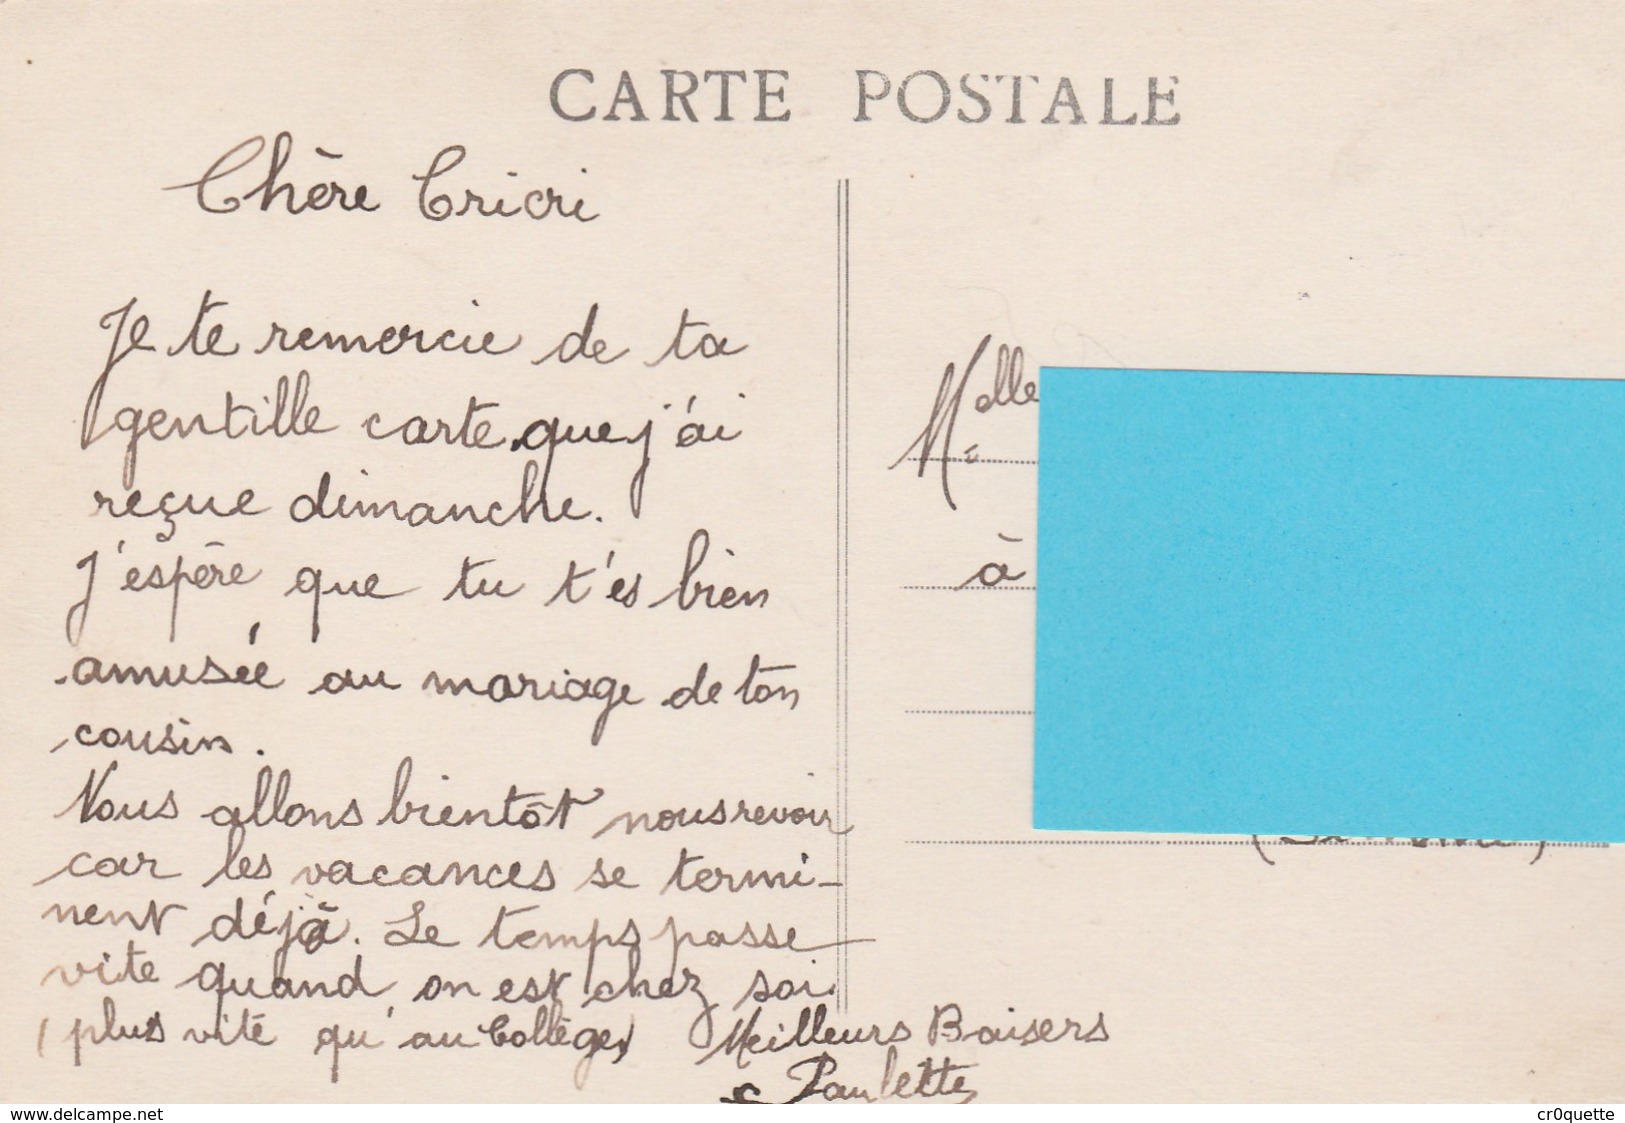 CARTE POSTALE
Chère Cricri
Je te remercie de ta
gentille carte que j'ai
reçue dimanche.
J'espère que tu t'es bien
amusée au mariage de ton
cousin.
Nous allons bientôt nous revoir
car les vacances se termi-
nent déjà. Le temps passe
vite quand on est chez soi.
(plus vite qu'au Collège)
Meilleurs Baisers
Paulette
Melle
à
delcampe.net
cr0quette